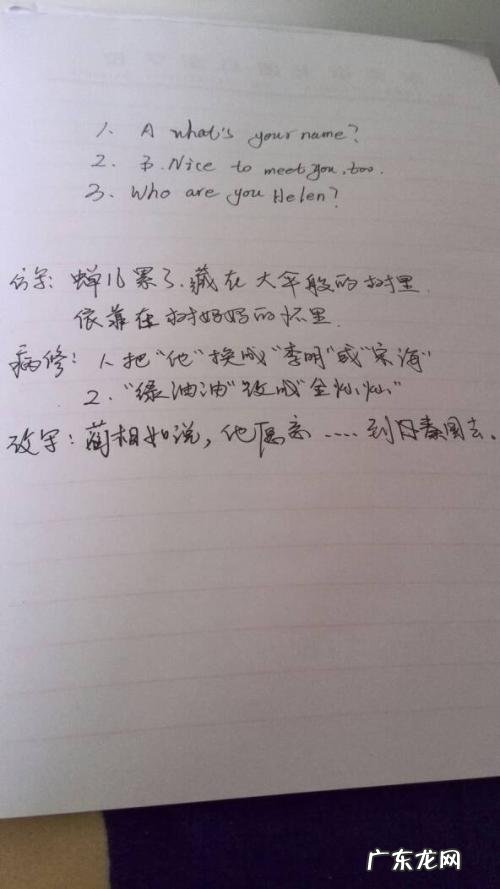 1. A what's your name?
2. B. Nice to meet you, too.
3. Who are you Helen?
仿写: 蝉儿累了.藏在大伞般的树里.
依靠在树妈妈的怀里.
病修: 1. 把"他"换成"李明"或"宋海"
2. "绿油油"改成"金灿灿"
改写: 蔺相如说, 他愿亲 ..... 到秦国去.
广东龙网